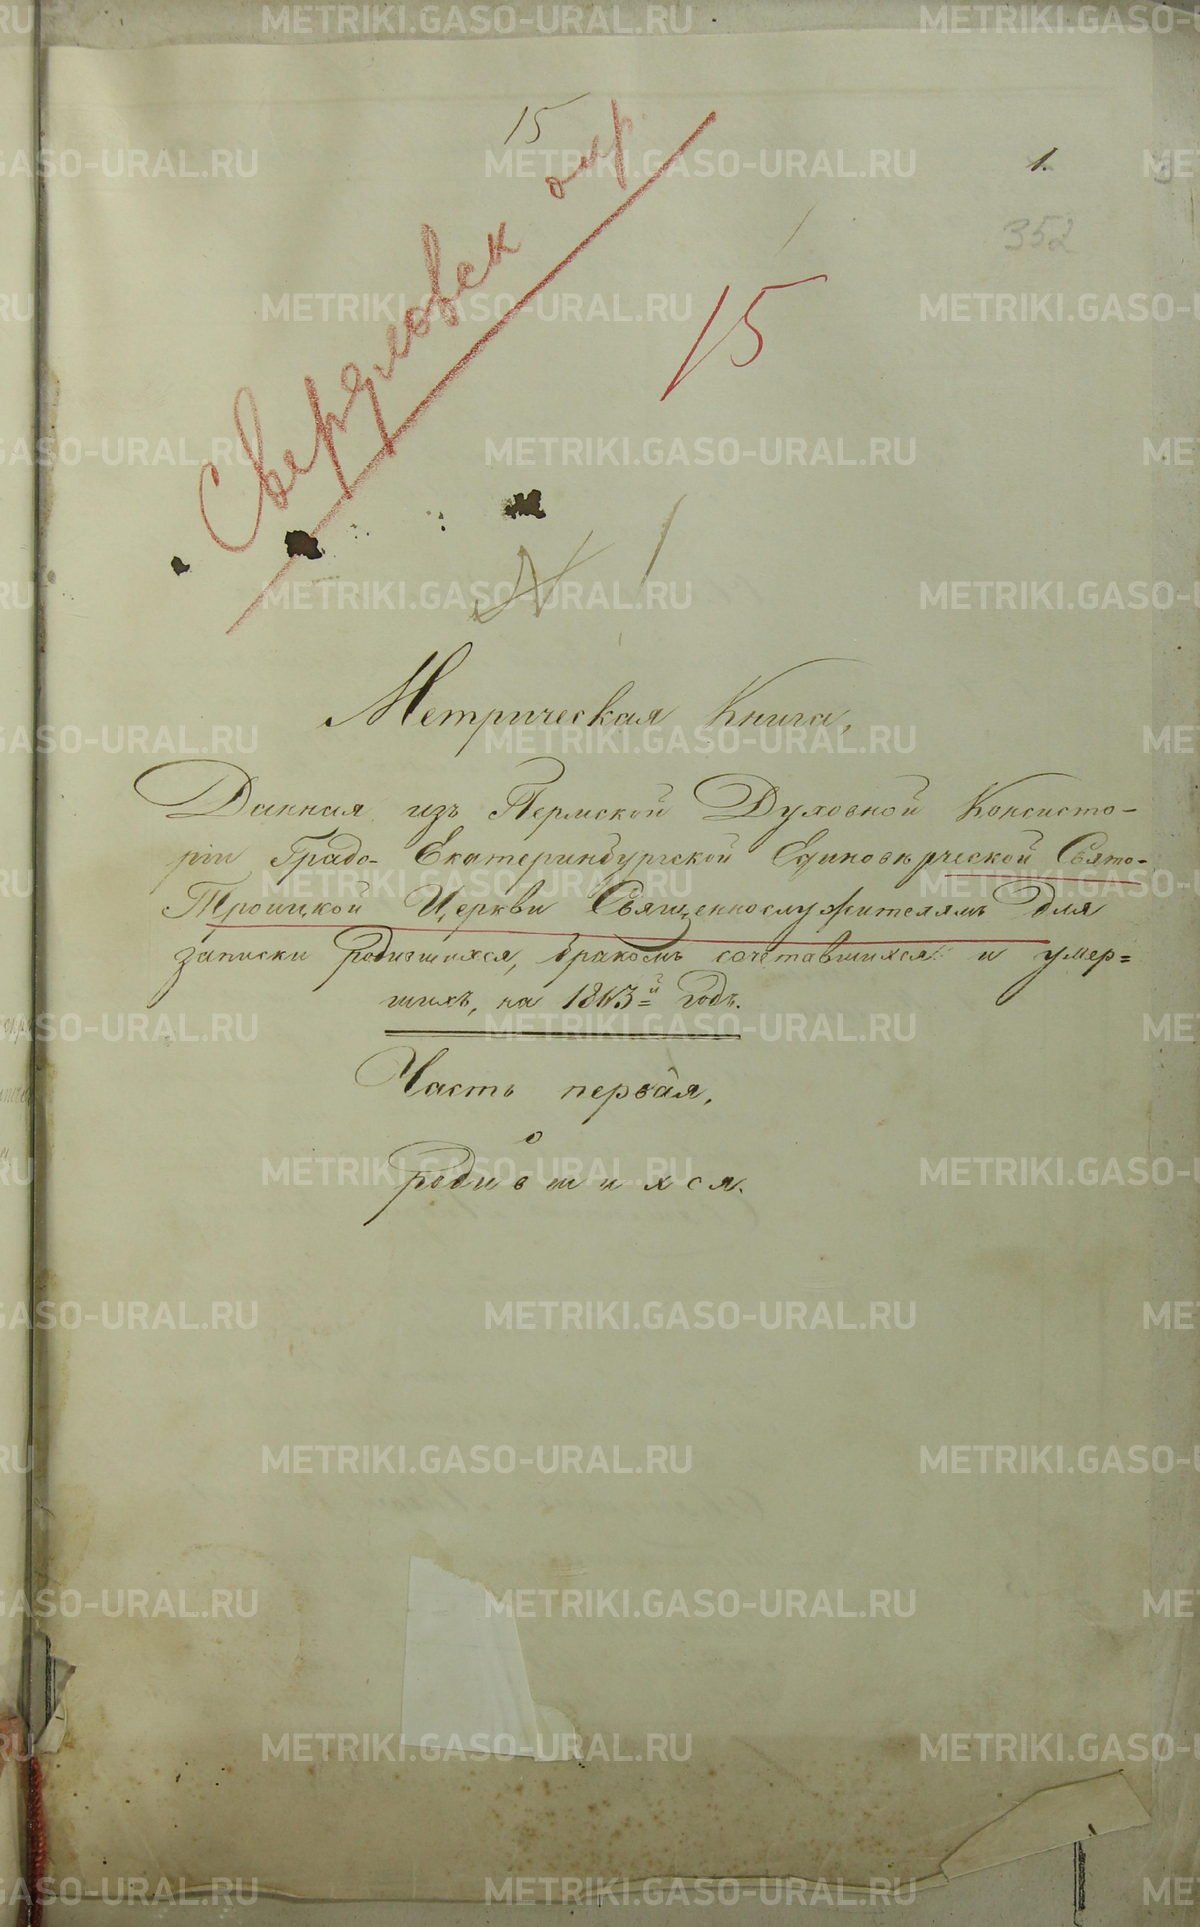 15
1.
352
Свердловск окр.
15
№ 1
Метрическая Книга,
Данная изъ Пермской Духовной Консисто-
ріи Градо-Екатеринбургской Единовѣрческой Свято-
Троицкой Церкви Священнослужителямъ для
записки родившихся, бракомъ сочетавшихся и умер=
шихъ, на 1863=й годъ.
Часть первая,
о
родившихся.
METRIKI.GASO-URAL.RU